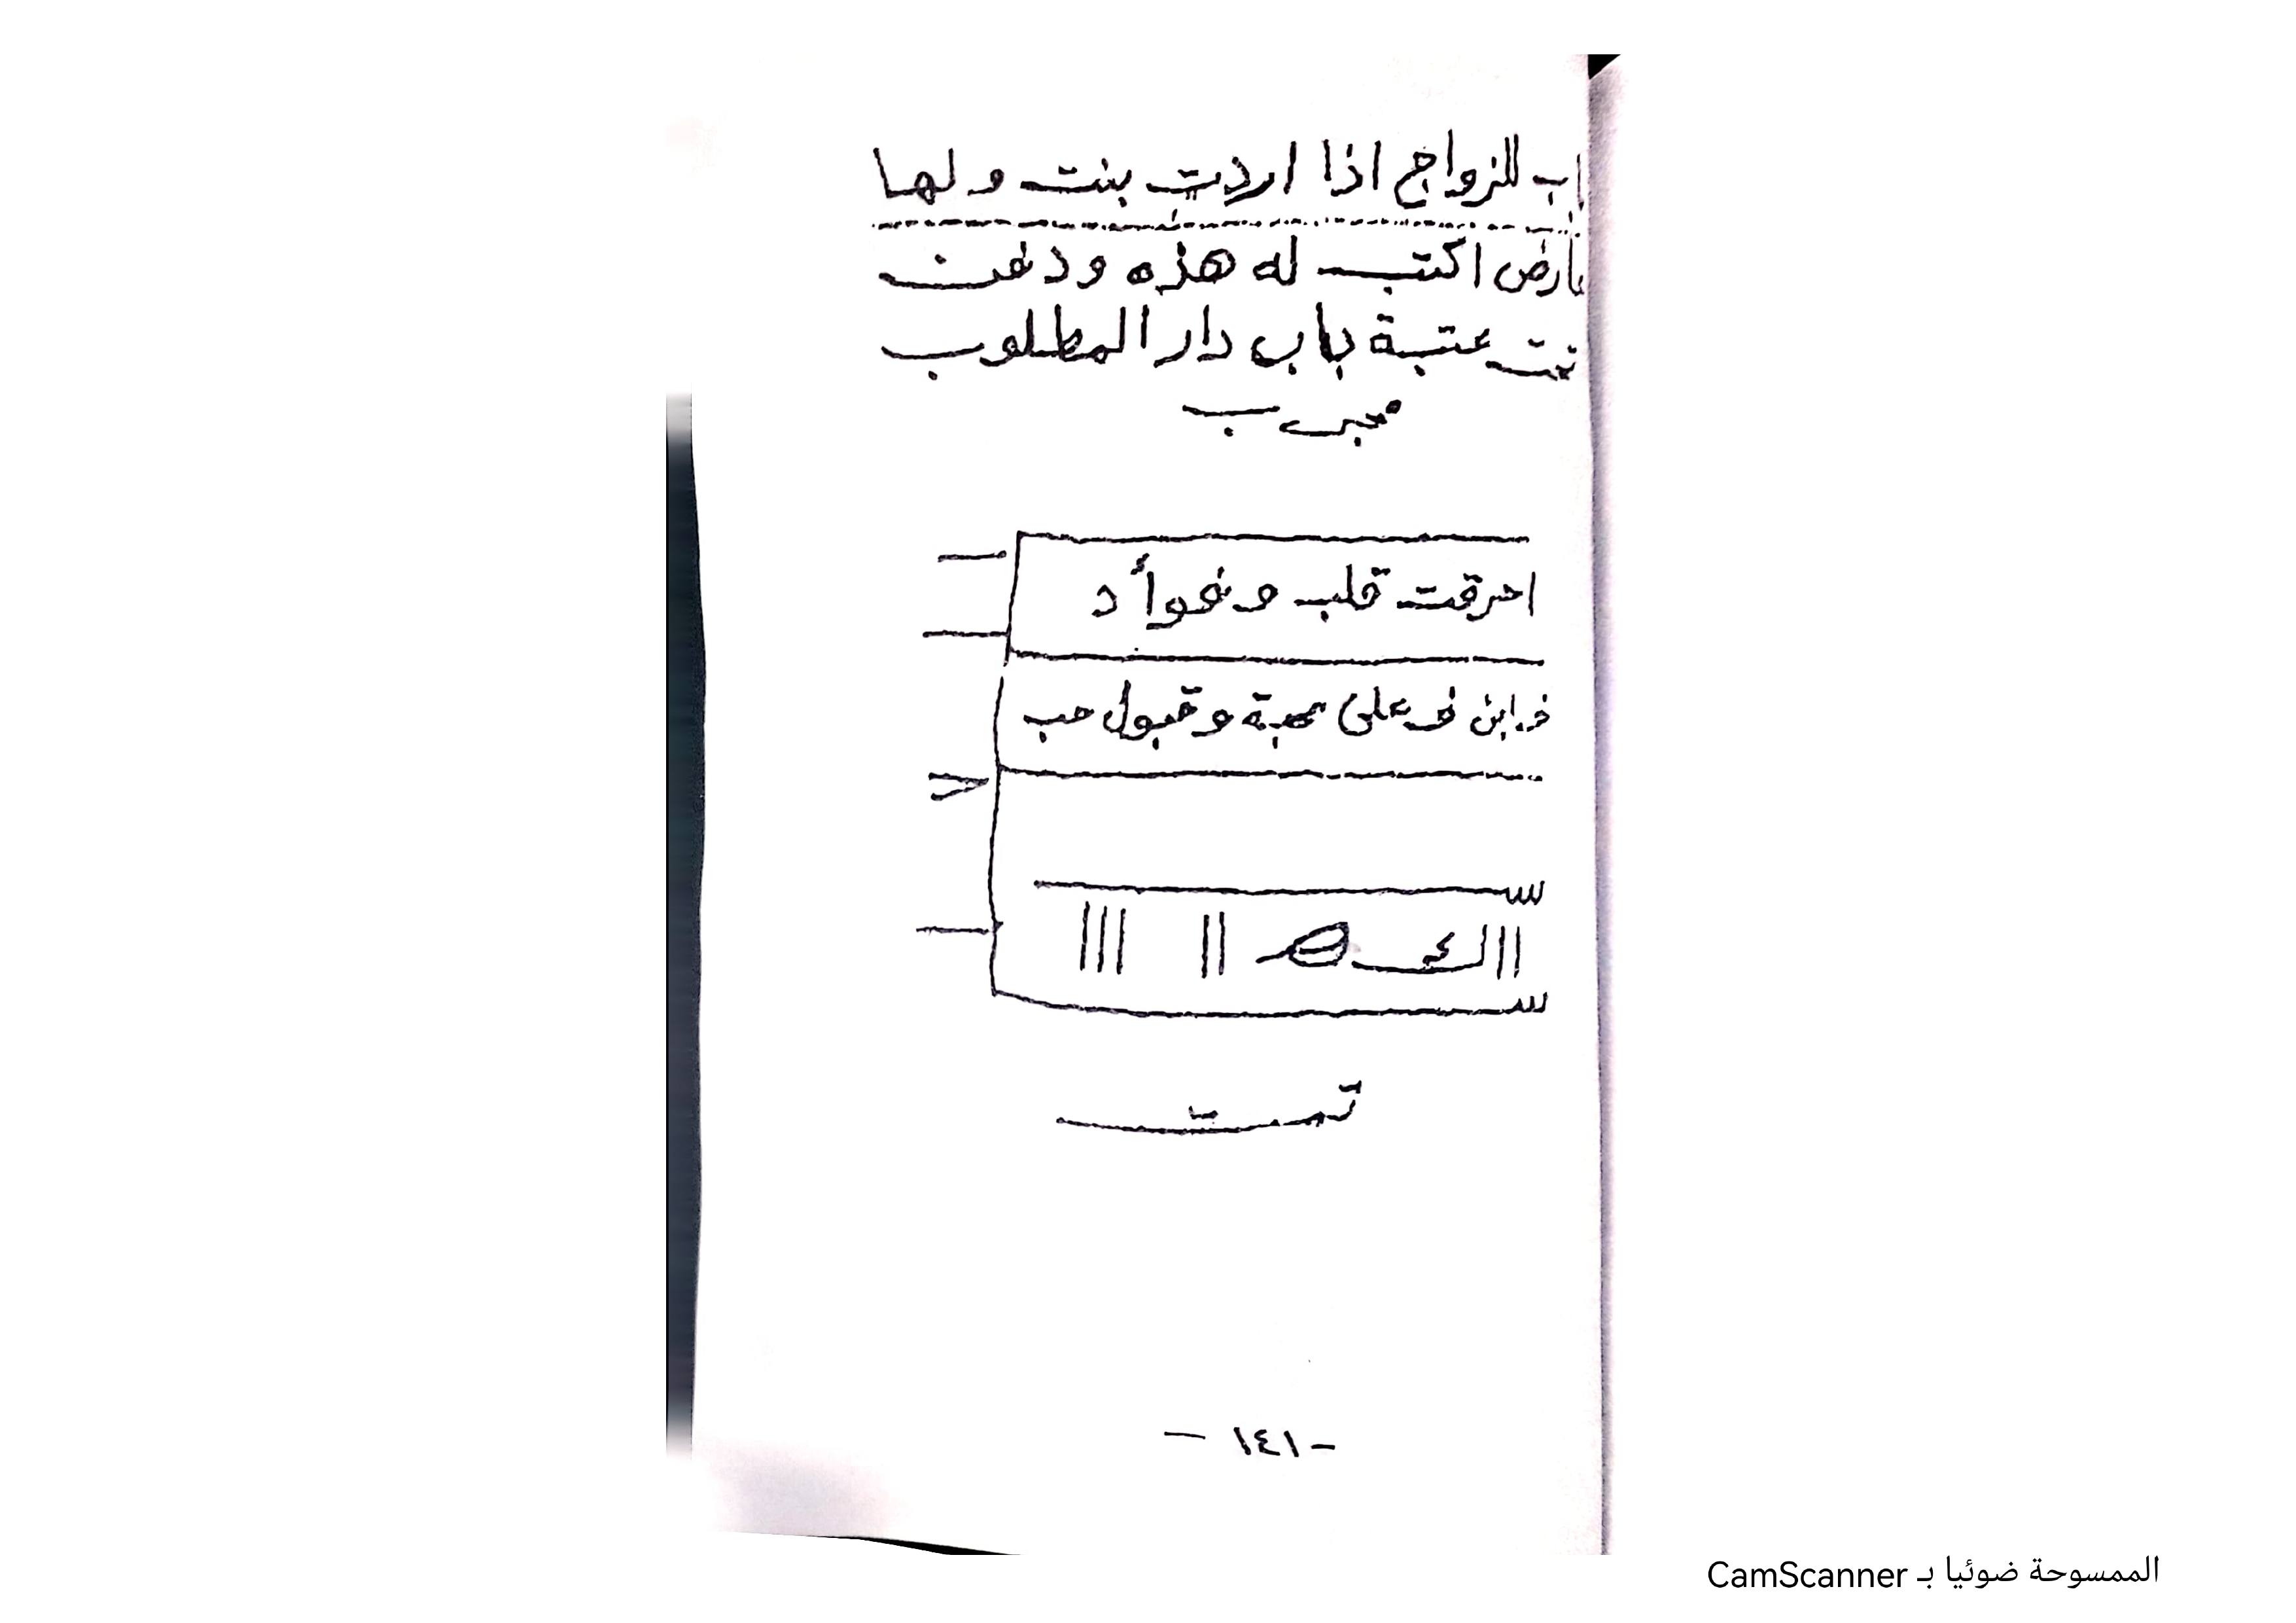 اب للزواج اذا اردت بنت و لها
ارض اكتب له هذه و دفن
تحت عتبة باب دار المطلوب
مجرب
احرقت قلب و فوأد
ف ابن ف على محبة و قبول حب
تمت
- ١٤١ -
الممسوحة ضوئيا بـ CamScanner